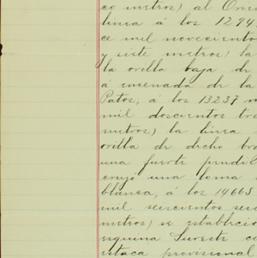 co metros) al Orie
línea á los 1294
ce mil noveciento
y siete metros) la
la orilla baja de
a ensenada de la
Patos, a los 13237 m
mil doscientos tre
metros) la línea
orilla de dicho bra
una fuerte
cruzó una loma
blanca, á los 14663
mil seiscientos ses
metros) se estableció
esquina Sureste co
estaca provisional